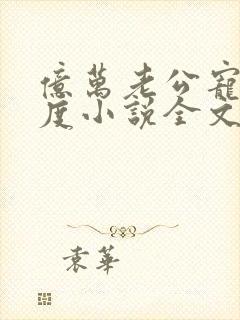 億萬老公寵
度小說全文
袁華